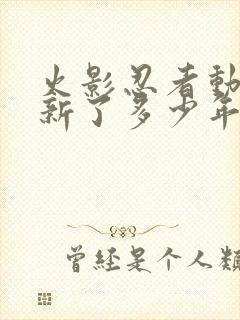 火影忍者動
新了多少年
曾經是个人類